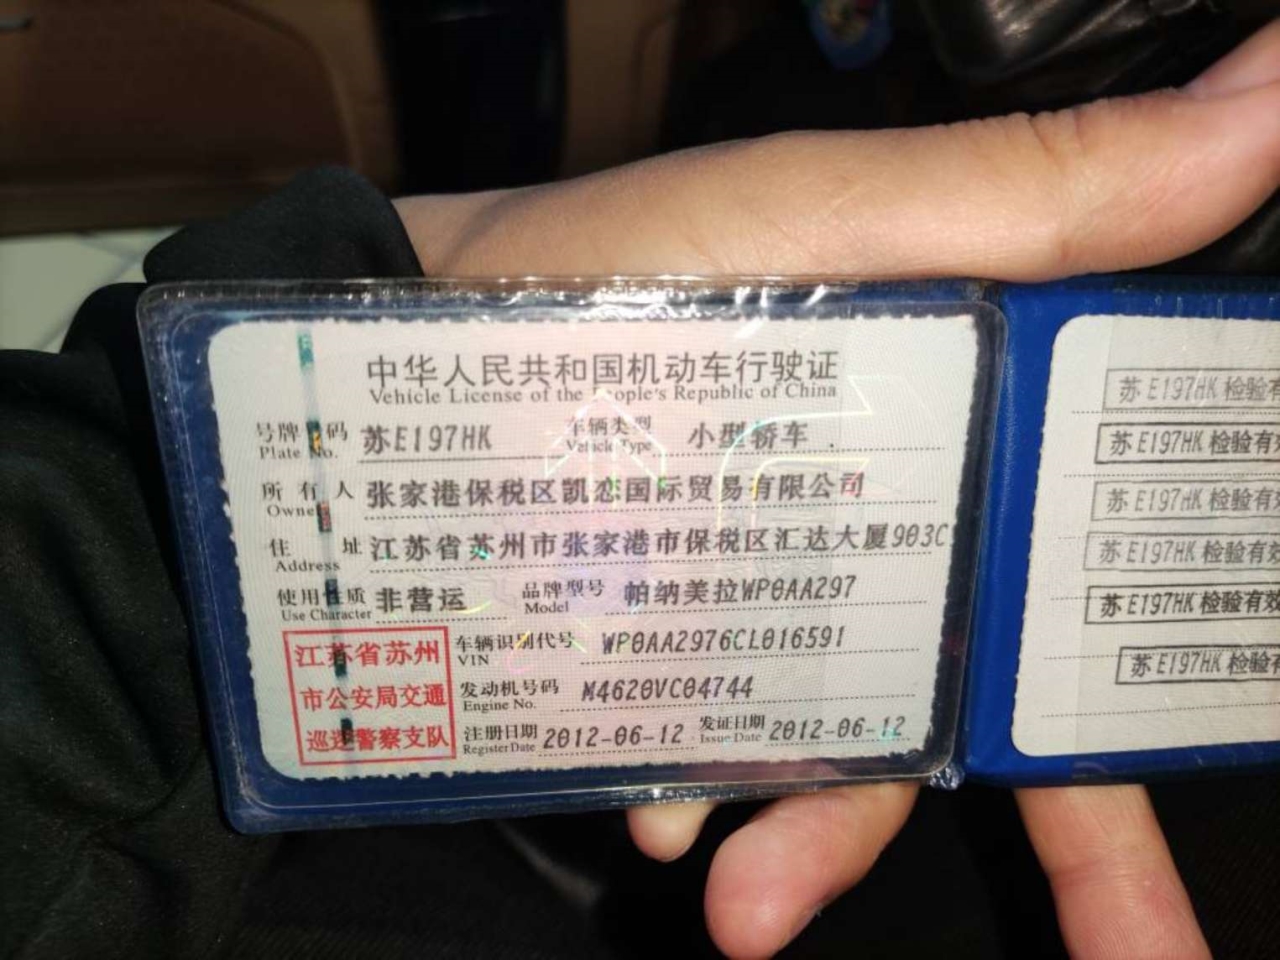 中华人民共和国机动车行驶证
Vehicle License of the People's Republic of China
号牌号码 苏E197HK 车辆类型 小型轿车
Plate No. Vehicle Type
所有人 张家港保税区凯恋国际贸易有限公司
Owner
住址 江苏省苏州市张家港市保税区汇达大厦903C
Address
使用性质 非营运 品牌型号 帕纳美拉WP0AA297
Use Character Model
江苏省苏州
市公安局交通
巡逻警察支队
车辆识别代号 WP0AA2976CL016591
VIN
发动机号码 M4620VC04744
Engine No.
注册日期 2012-06-12 发证日期 2012-06-12
Register Date Issue Date
苏E197HK 检验有
苏E197HK 检验有效
苏E197HK 检验有
苏E197HK 检验有效
苏E197HK 检验有效
苏E197HK 检验有